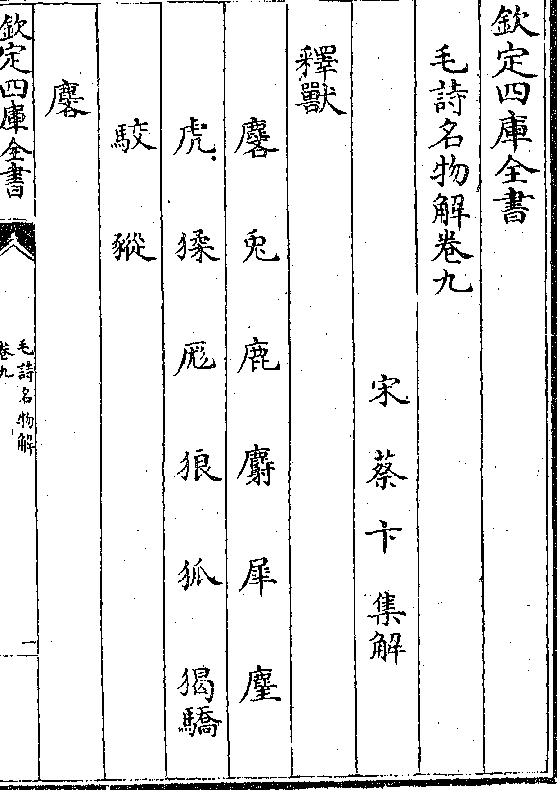 欽定四庫全書
毛詩名物解卷九
宋 蔡卞 集解
釋獸
麐 兎 鹿 麝 犀 麈
虎 猱 厖 狼 狐 猲驕
駮 豵
麐
欽定四庫全書
毛詩名物解
卷九
一